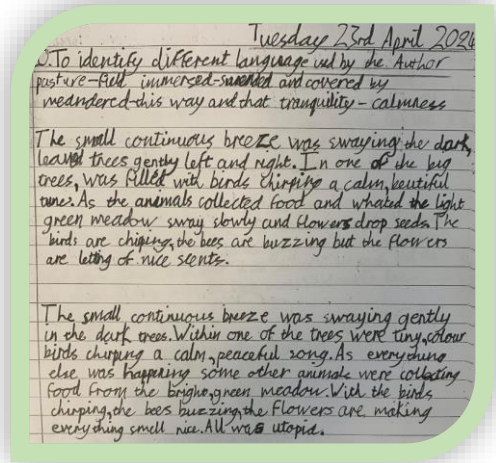 Tuesday 23rd April 2024
O.To identify different language used by the Author
pasture-field immersed-surrounded and covered by
meandered-this way and that tranquility-calmness
The small continuous breeze was swaying the dark,
leaved trees gently left and right. In one of the big
trees, was filled with birds chirping a calm, beutiful
tune. As the animals collected food and whated the light
green meadow sway slowly and flowers drop seeds. The
birds are chiping, the bees are buzzing but the flowers
are leting of nice scents.
The small continuous breeze was swaying gently
in the dark trees. Within one of the trees were tiny, colour
birds chirping a calm, peaceful song. As everything
else was happening some other animals were collecting
food from the bright, green meadow. With the birds
chirping, the bees buzzing, the flowers are making
everything smell nice. All was utopia.